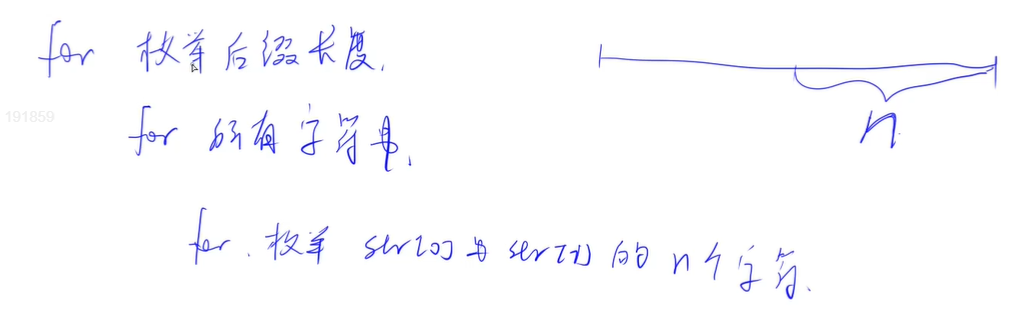 for 枚举后缀长度.
191859
for 所有字符串.
n
for 枚举 str[0] 与 str[i] 的 n个字符.